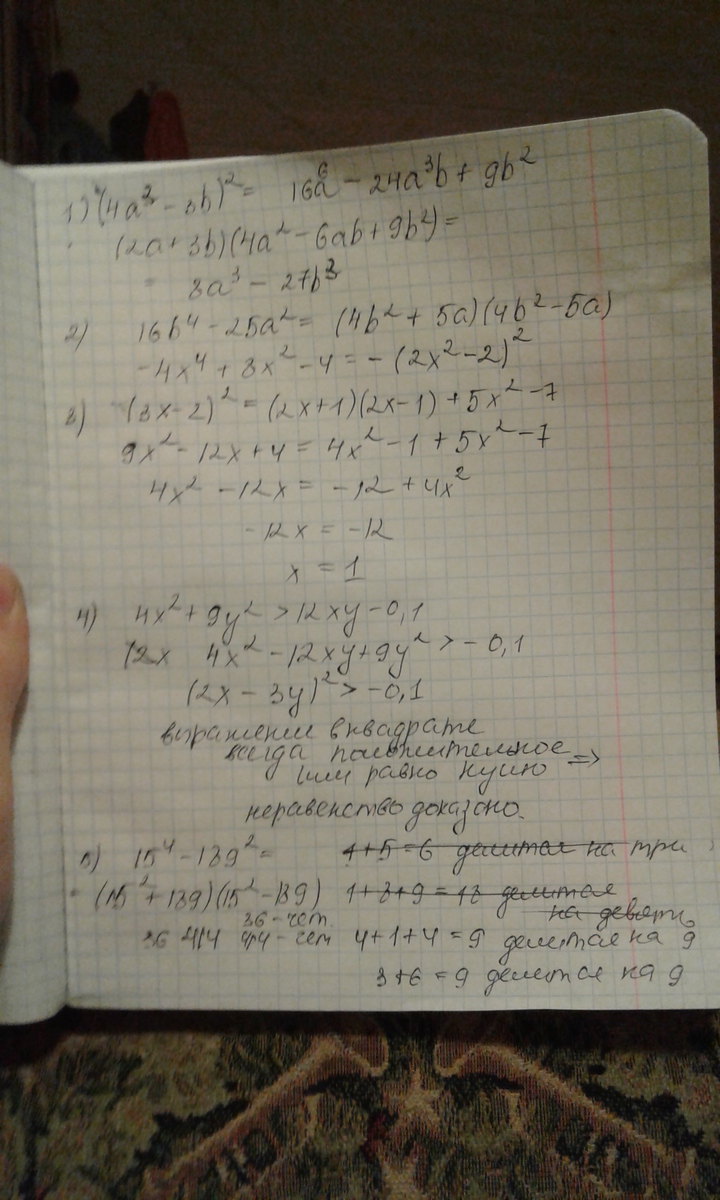 1) (4a³ - 3b)² = 16a⁶ - 24a³b + 9b²
(2a + 3b)(4a² - 6ab + 9b²) =
= 8a³ - 27b³
2) 16b⁴ - 25a² = (4b² + 5a)(4b² - 5a)
-4x⁴ + 8x² - 4 = -(2x² - 2)²
3) (3x - 2)² = (2x+1)(2x-1) + 5x² - 7
9x² - 12x + 4 = 4x² - 1 + 5x² - 7
4x² - 12x = -12 + 4x²
-12x = -12
x = 1
4) 4x² + 9y² > 12xy - 0,1
(2x 4x² - 12xy + 9y² > -0,1
(2x - 3y)² > -0,1
выражение в квадрате
всегда положительное
или равно нулю =>
неравенство доказано.
5) 15⁴ - 189² = 1+5=6 делится на три
= (15² + 189)(15² - 189) 1+8+9=18 делится
на девять
36 - чет
36 414 414 - чет 4+1+4 = 9 делится на 9
3+6 = 9 делится на 9